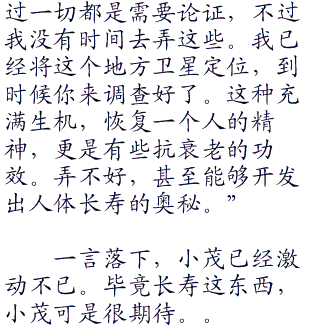 过一切都是需要论证，不过
我没有时间去弄这些。我已
经将这个地方卫星定位，到
时候你来调查好了。这种充
满生机，恢复一个人的精
神，更是有些抗衰老的功
效。弄不好，甚至能够开发
出人体长寿的奥秘。”
一言落下，小茂已经激
动不已。毕竟长寿这东西，
小茂可是很期待。。